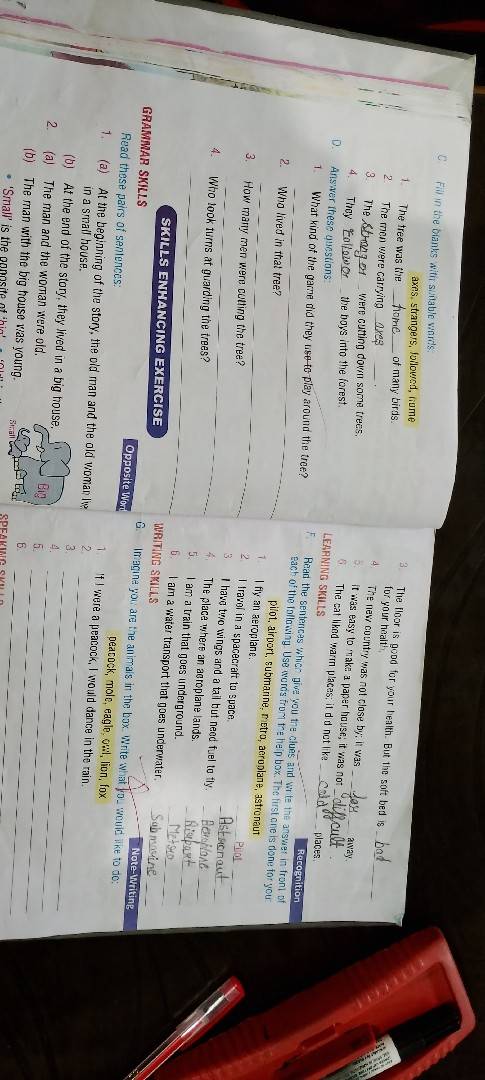 C. Fill in the blanks with suitable words.
axes, strangers, followed, home
1. The tree was the home of many birds.
2. The men were carrying axes.
3. The stranger were cutting down some trees.
4. They the boys into the forest.
D. Answer these questions:
1. What kind of the game did they use to play around the tree?
2. Who lived in that tree?
3. How many men were cutting the tree?
4. Who took turns at guarding the trees?
SKILLS ENHANCING EXERCISE
GRAMMAR SKILLS
Opposite Wor
Read these pairs of sentences:
1. (a) At the beginning of the story, the old man and the old woman liv
in a small house.
(b) At the end of the story, they lived in a big house.
2. (a) The man and the woman were old.
(b) The man with the big house was young.
• 'Small' is the opposite of 'big'.
Small
Big
3. The floor is good for your health. But the soft bed is bad
for your health.
4. The new country was not close by; it was far away.
5. It was easy to make a paper house; it was not difficult.
6. The cat liked warm places; it did not like cold places.
LEARNING SKILLS
Recognition
F. Read the sentences which give you the clues and write the answer in front of
each of the following. Use words from the help box. The first one is done for you:
pilot, airport, submarine, metro, aeroplane, astronaut
1. I fly an aeroplane. Pilot
2. I travel in a spacecraft to space. Astronaut
3. I have two wings and a tail but need fuel to fly.
4. The place where an aeroplane lands.
5. I am a train that goes underground. Metro
6. I am a water transport that goes underwater. Submarine
WRITING SKILLS
Note-Writing
G. Imagine you are the animals in the box. Write what you would like to do:
peacock, mole, eagle, owl, lion, fox
1. If I were a peacock, I would dance in the rain.
2.
3.
4.
5.
6.
SPEAKING SKILLS